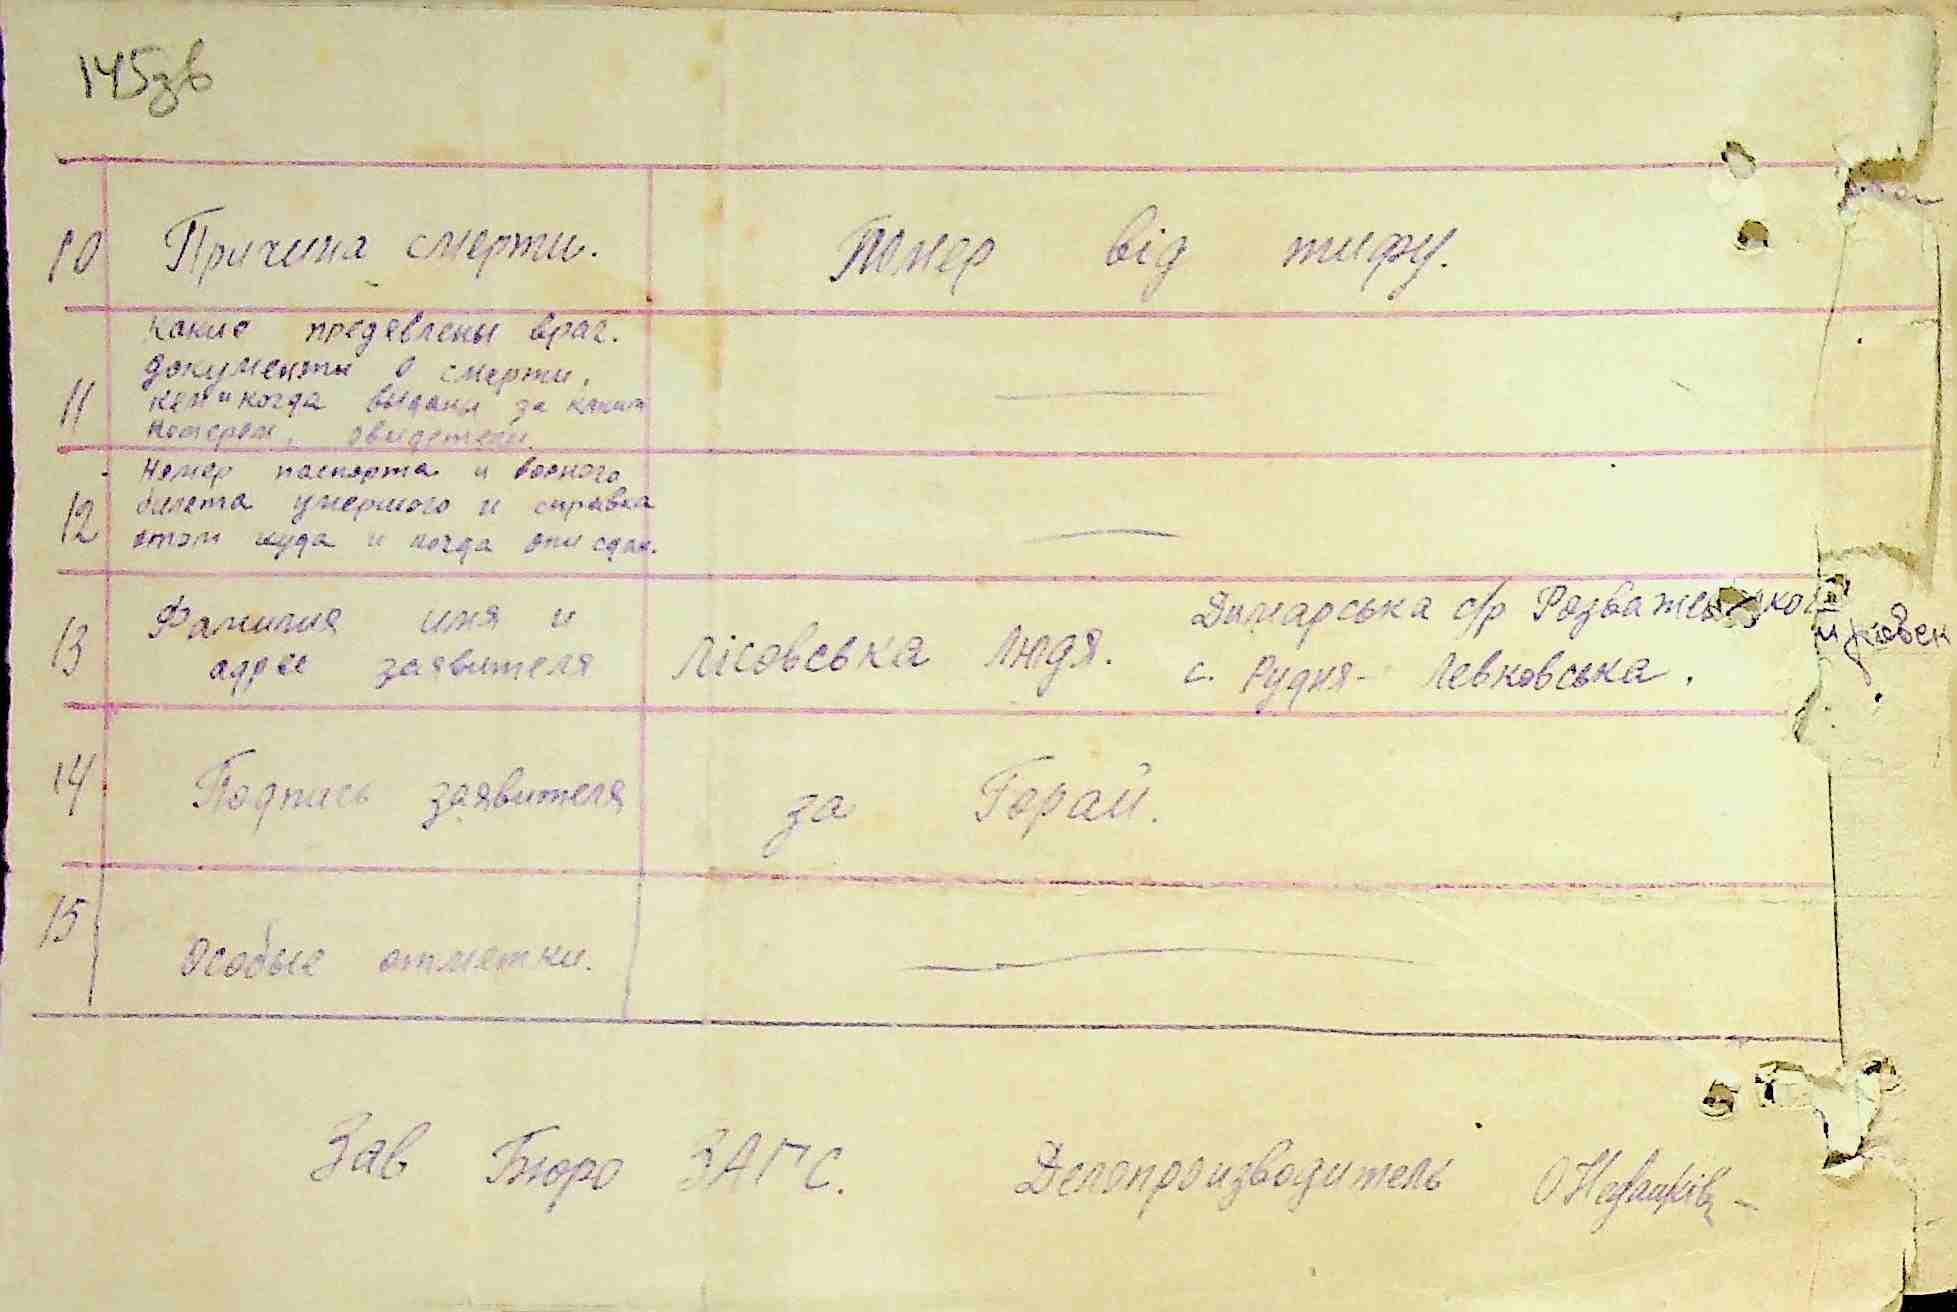 145зв
10 Причина смерти. Помер від тифу.
Какие предявлены врач.
документы о смерти,
11 кем и когда выданы за каким
номером, свидетели.
Номер паспорта и военого
12 билета умершого и справка
этом куда и когда они сдан.
13 Фамилия имя и
адрес заявителя
Лісовська Людя.
Димарська с/р Розважевского
с. Рудня-Левковська.
14 Подпись заявителя за Горай.
15 Особые отметки.
Зав Бюро ЗАГС. Делопроизводитель